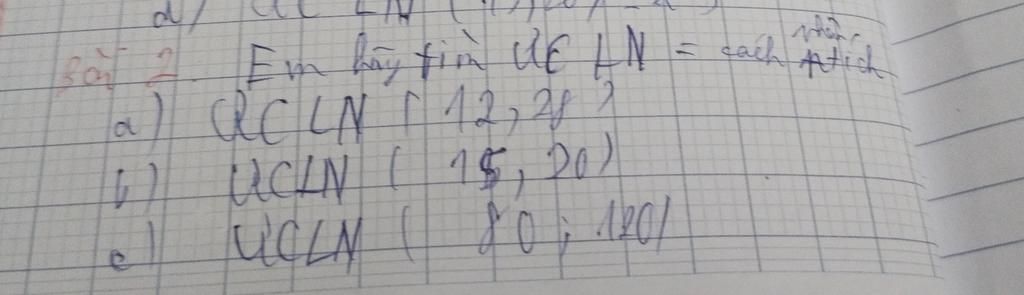 d) ƯCLN (
Bài 2. Em hãy tìm ƯCLN = cách phân tích
a) ƯCLN ( 12, 28 )
b) ƯCLN ( 15, 20)
c) ƯCLN ( 80; 120)